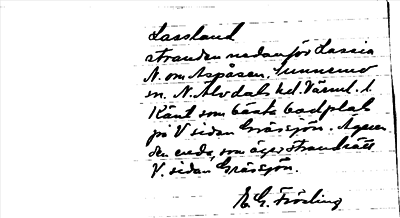 Lassland
stranden nedanför Lassia
N. om Aspåsen. Sunnemo
sn. N. Älvdals hd. Värml. l.
Känt som bästa badplats
på V sidan Grässjön. Ägaren
den enda, som äger strandrätt
V. sidan Grässjön.
E. G. Frösling